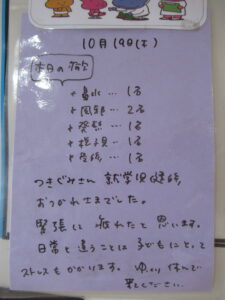 10月19日(木)
本日の病欠
鼻水… 1名
風邪… 2名
発熱… 1名
様子見… 1名
腹痛… 1名
つきぐみさん 就学児健診
おつかれさまでした。
緊張して疲れたと思います。
日常と違うことは子どもにとって
ストレスもかかります。ゆっくり休んで
下さい。